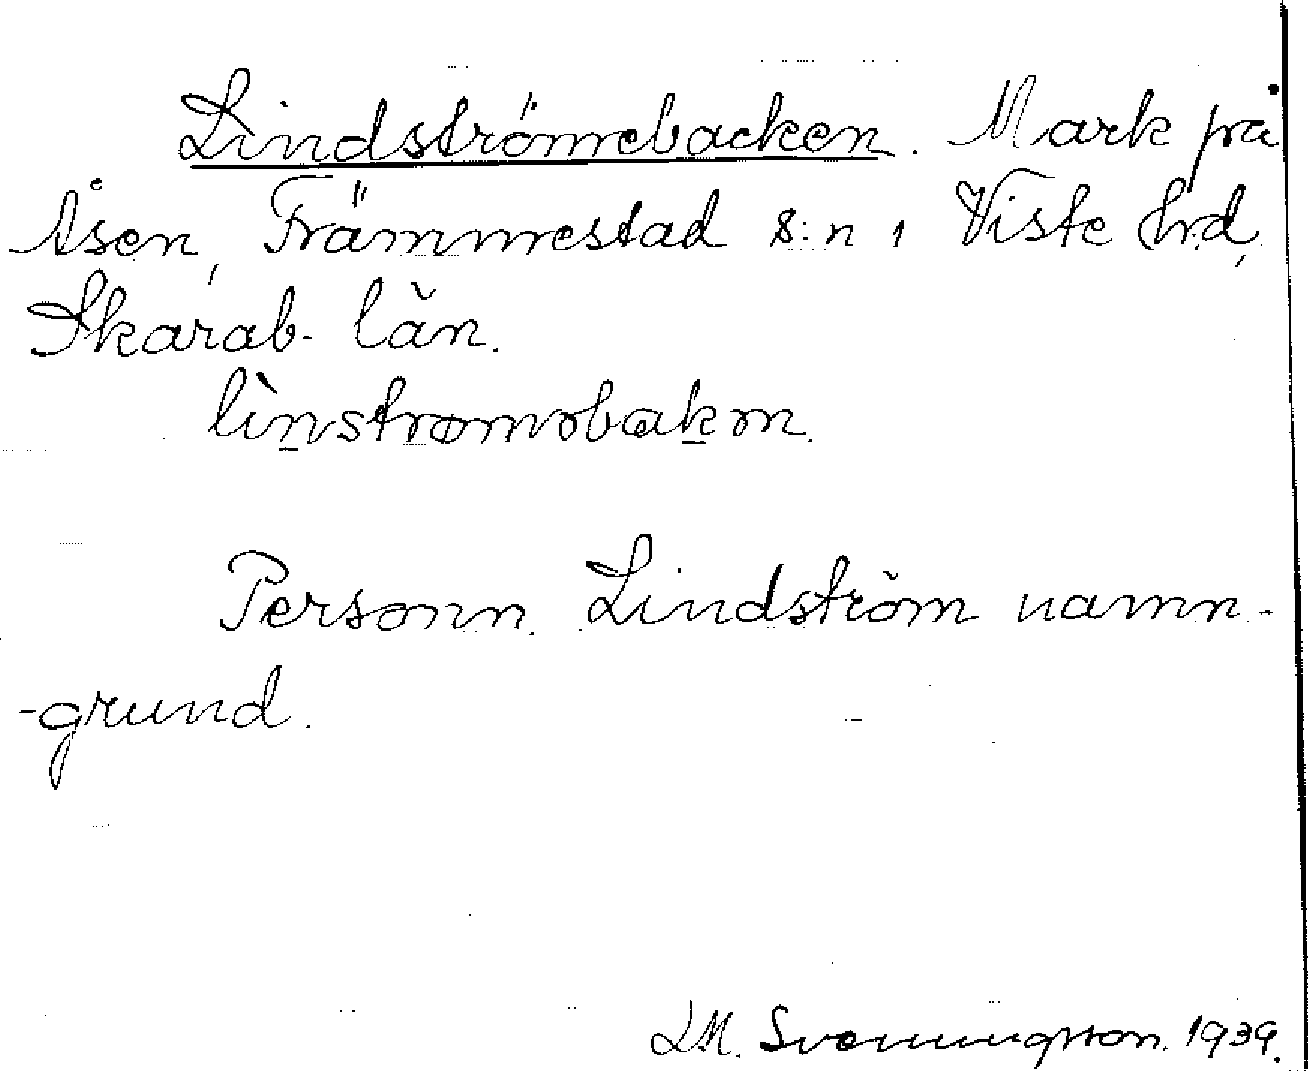 Lindströmebacken. Mark på
Åsen, Främmestad s:n i Viste hrd,
Skarab. län.
lìnstrøməbakən.
Personn. Lindström namn-
-grund.
L.M. Svenningsson. 1939.